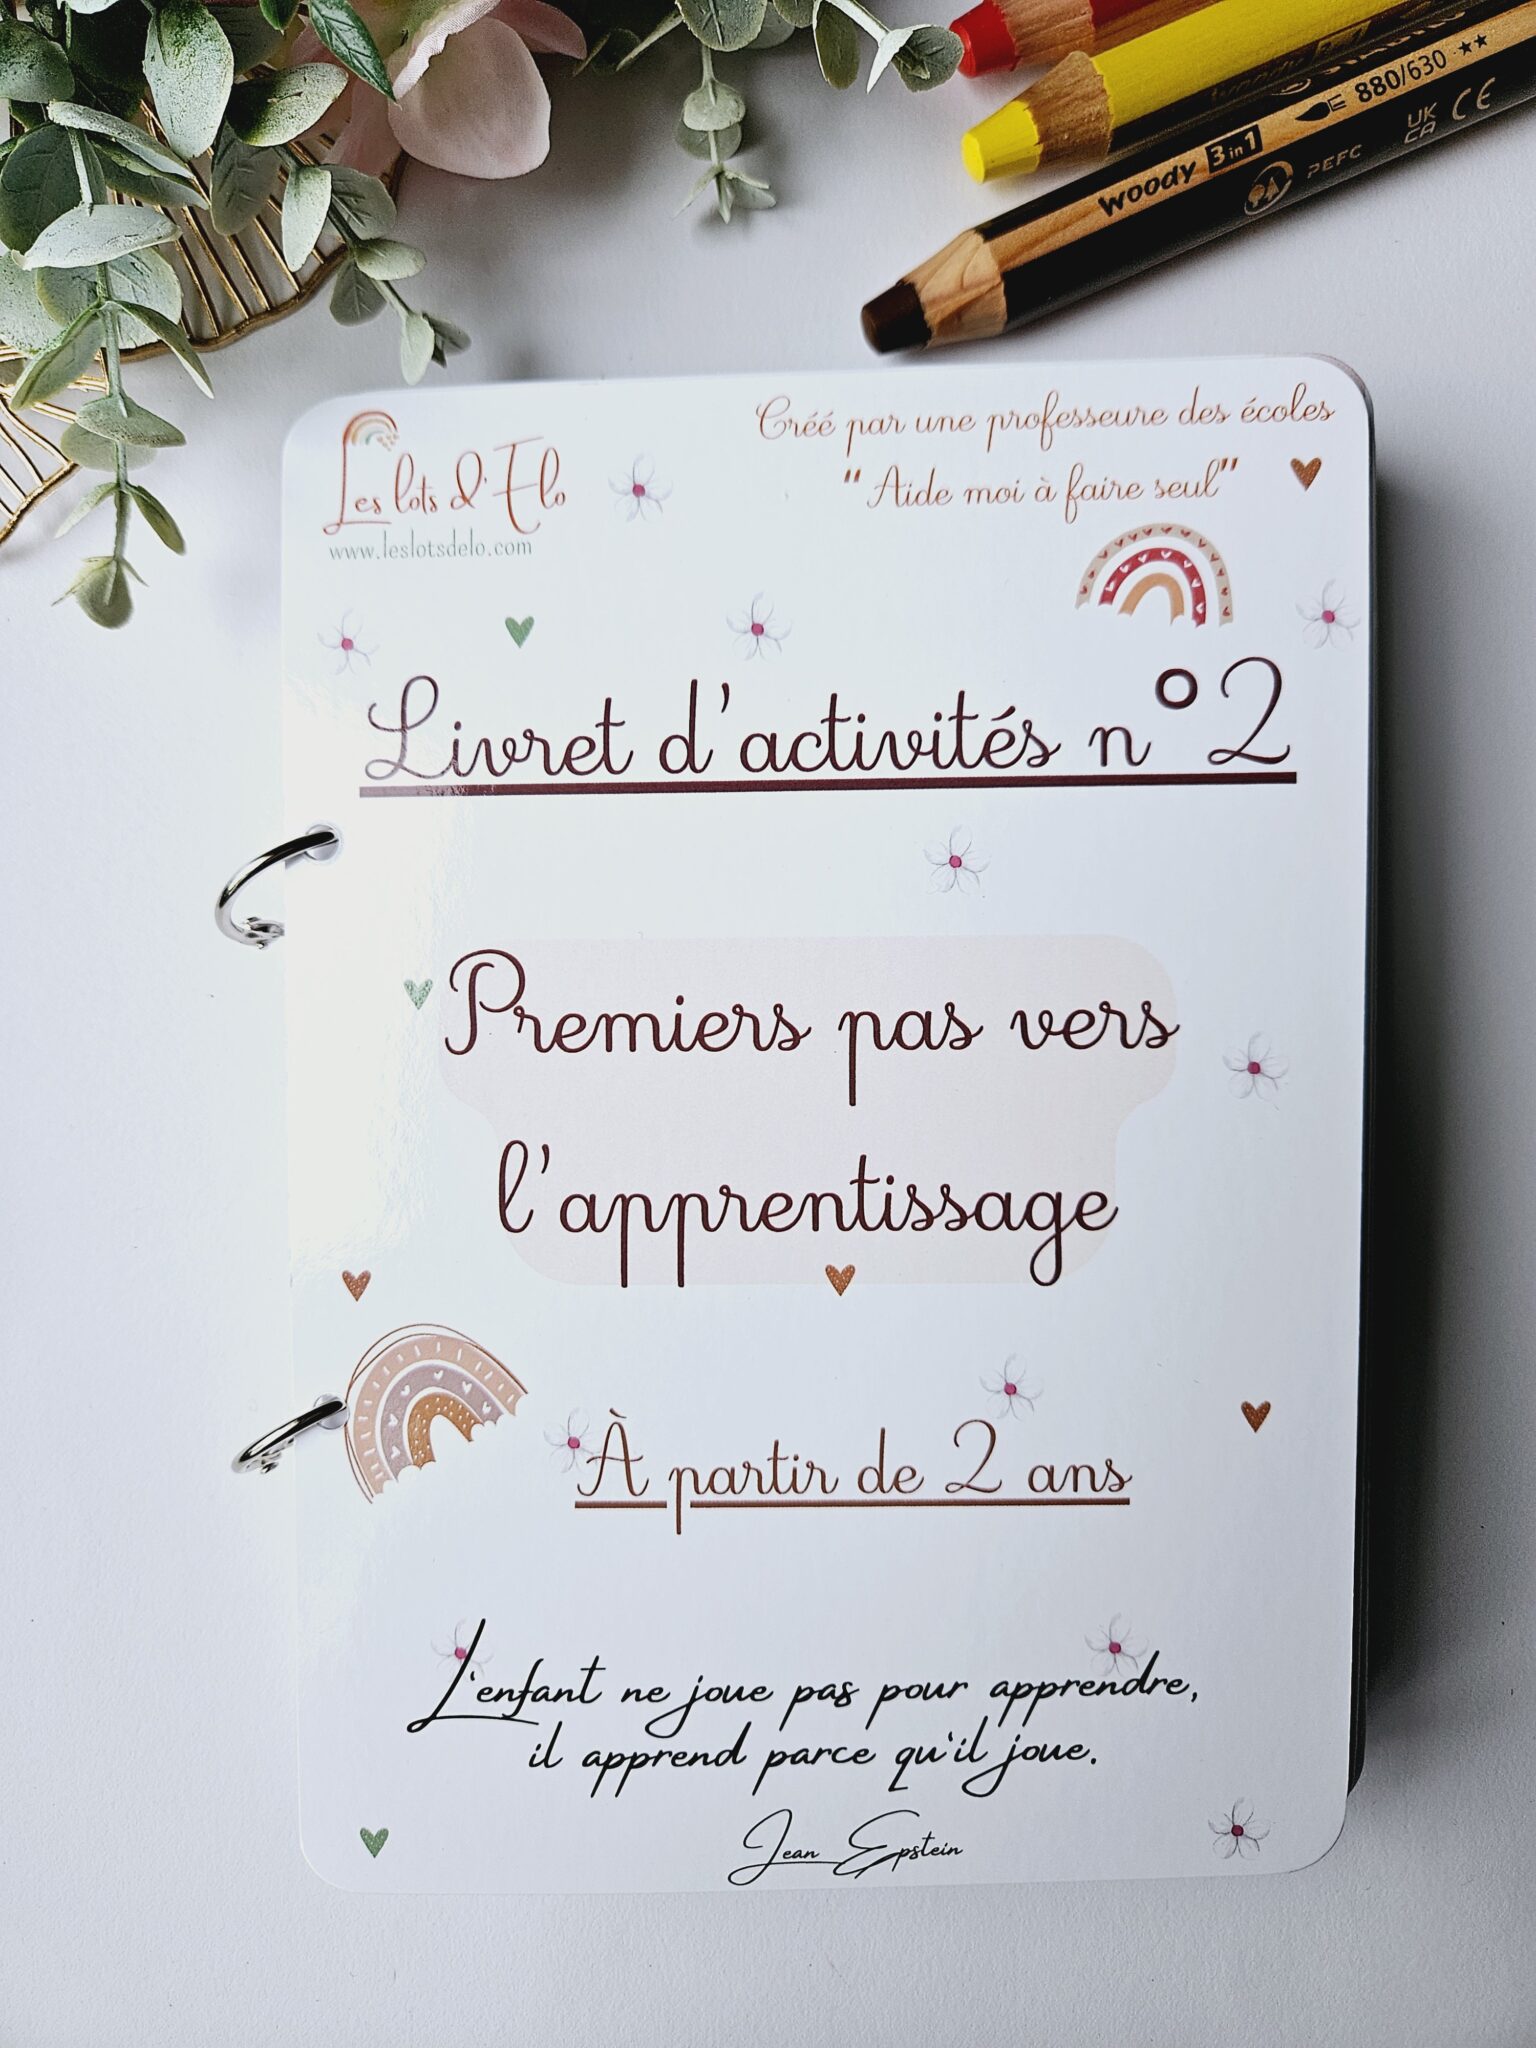 880/630 **
UK
CA CE
woody 3 in 1
PEFC
Créé par une professeure des écoles
"Aide moi à faire seul"
Les lots d'Elo
www.leslotsdelo.com
Livret d'activités n°2
Premiers pas vers
l'apprentissage
À partir de 2 ans
L'enfant ne joue pas pour apprendre,
il apprend parce qu'il joue.
Jean Epstein